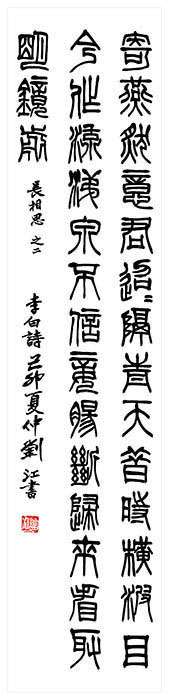 寄燕然意君迢〻隔青天昔時橫波目
今作流淚泉不信妾腸斷歸來看取
明鏡前
長相思 之二
李白詩 己卯夏仲 劉江書